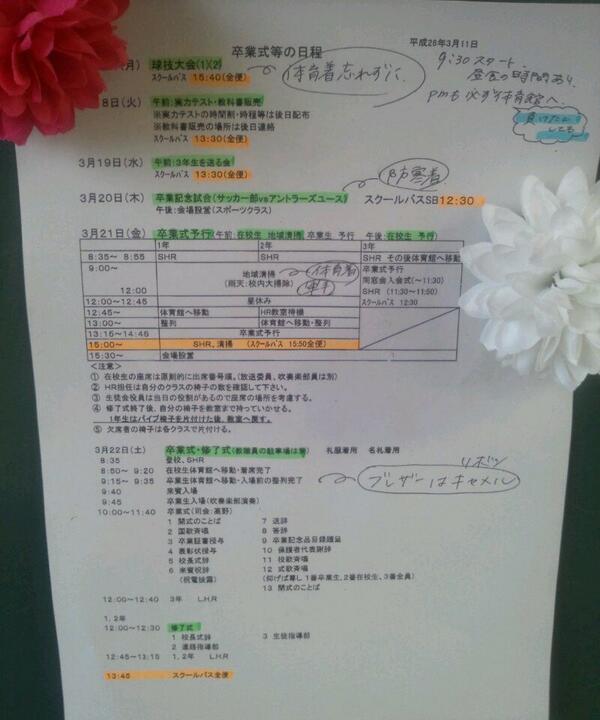 平成26年3月11日
卒業式等の日程
(月) 球技大会(1)(2)
スクールバス 15:40(全便)
体育着忘れずに
9:30 スタート
8日(火) 午前:実力テスト・教科書販売
※実力テストの時間割・時程等は後日配布
※教科書販売の場所は後日連絡
スクールバス 13:30(全便)
3月19日(水) 午前:3年生を送る会
スクールバス 13:30(全便)
3月20日(木) 卒業記念試合(サッカー部vsアントラーズユース) スクールバスSB12:30
午後:会場設営(スポーツクラス)
防寒着
3月21日(金) 卒業式予行(午前:在校生 地域清掃 卒業生 予行 午後:在校生 予行)
1年 2年 3年
8:35~ 8:55 SHR SHR SHR その後体育館へ移動
9:00~ 地域清掃 体育着 卒業式予行
(雨天:校内大掃除) 軍手 同窓会入会式(~11:30)
12:00 SHR (11:30~11:50)
12:00~12:45 昼休み スクールバス 12:30
12:45~ 体育館へ移動 HR教室待機
13:00~ 整列 体育館へ移動・整列
13:15~14:45 卒業式予行
15:00~ SHR、清掃 (スクールバス 15:50全便)
15:30~ 会場設営
<注意>
① 在校生の座席は原則的に出席番号順。(放送委員、吹奏楽部員は別)
② HR担任は自分のクラスの椅子の数を確認して下さい。
③ 生徒会役員は当日の役割があるので座席の場所を考慮する。
④ 修了式終了後、自分の椅子を教室まで持っていかせる。
1年生はパイプ椅子を片付けた後、教室へ戻す。
⑤ 欠席者の椅子は各クラスで片付ける。
3月22日(土) 卒業式・修了式(教職員の駐車場は 礼服着用 名札着用
リボン
ブレザーはキャメル
8:35 登校、SHR
8:50~ 9:20 在校生体育館へ移動・着席完了
9:15~ 9:35 卒業生体育館へ移動・入場前の整列完了
9:40 来賓入場
9:45 卒業生入場(吹奏楽部演奏)
10:00~11:40 卒業式(司会:高野)
1 開式のことば 7 送辞
2 国歌斉唱 8 答辞
3 卒業証書授与 9 卒業記念品目録贈呈
4 表彰状授与 10 保護者代表謝辞
5 校長式辞 11 校歌斉唱
6 来賓祝辞 12 式歌斉唱
(祝電披露) (仰げば尊し 1番卒業生、2番在校生、3番全員)
13 閉式のことば
12:00~12:40 3年 L.H.R
1、2年
12:00~12:30 修了式
1 校長式辞 3 生徒指導部
2 進路指導部
12:45~13:15 1、2年 L.H.R
13:45 スクールバス全便